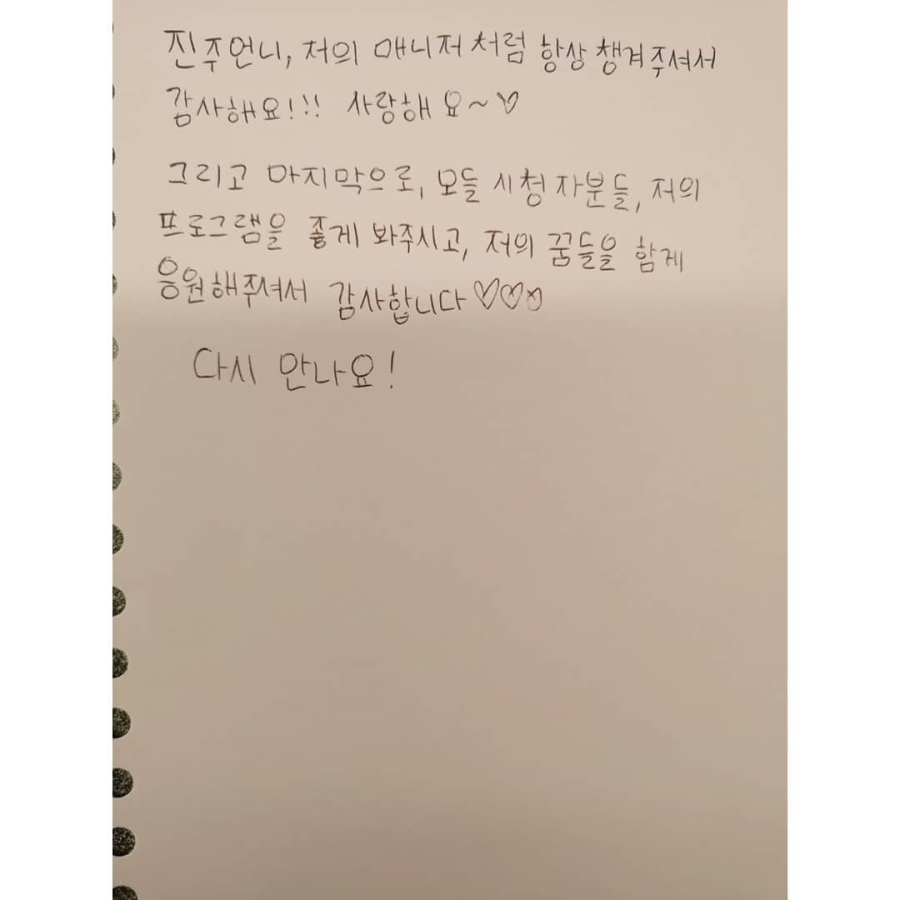 진주언니, 저의 매니저처럼 항상 챙겨주셔서
감사해요!!! 사랑해요~♡
그리고 마지막으로, 모들 시청자분들, 저의
프로그램을 좋게 봐주시고, 저의 꿈들을 함께
응원해주셔서 감사합니다♡♡♡
다시 만나요!